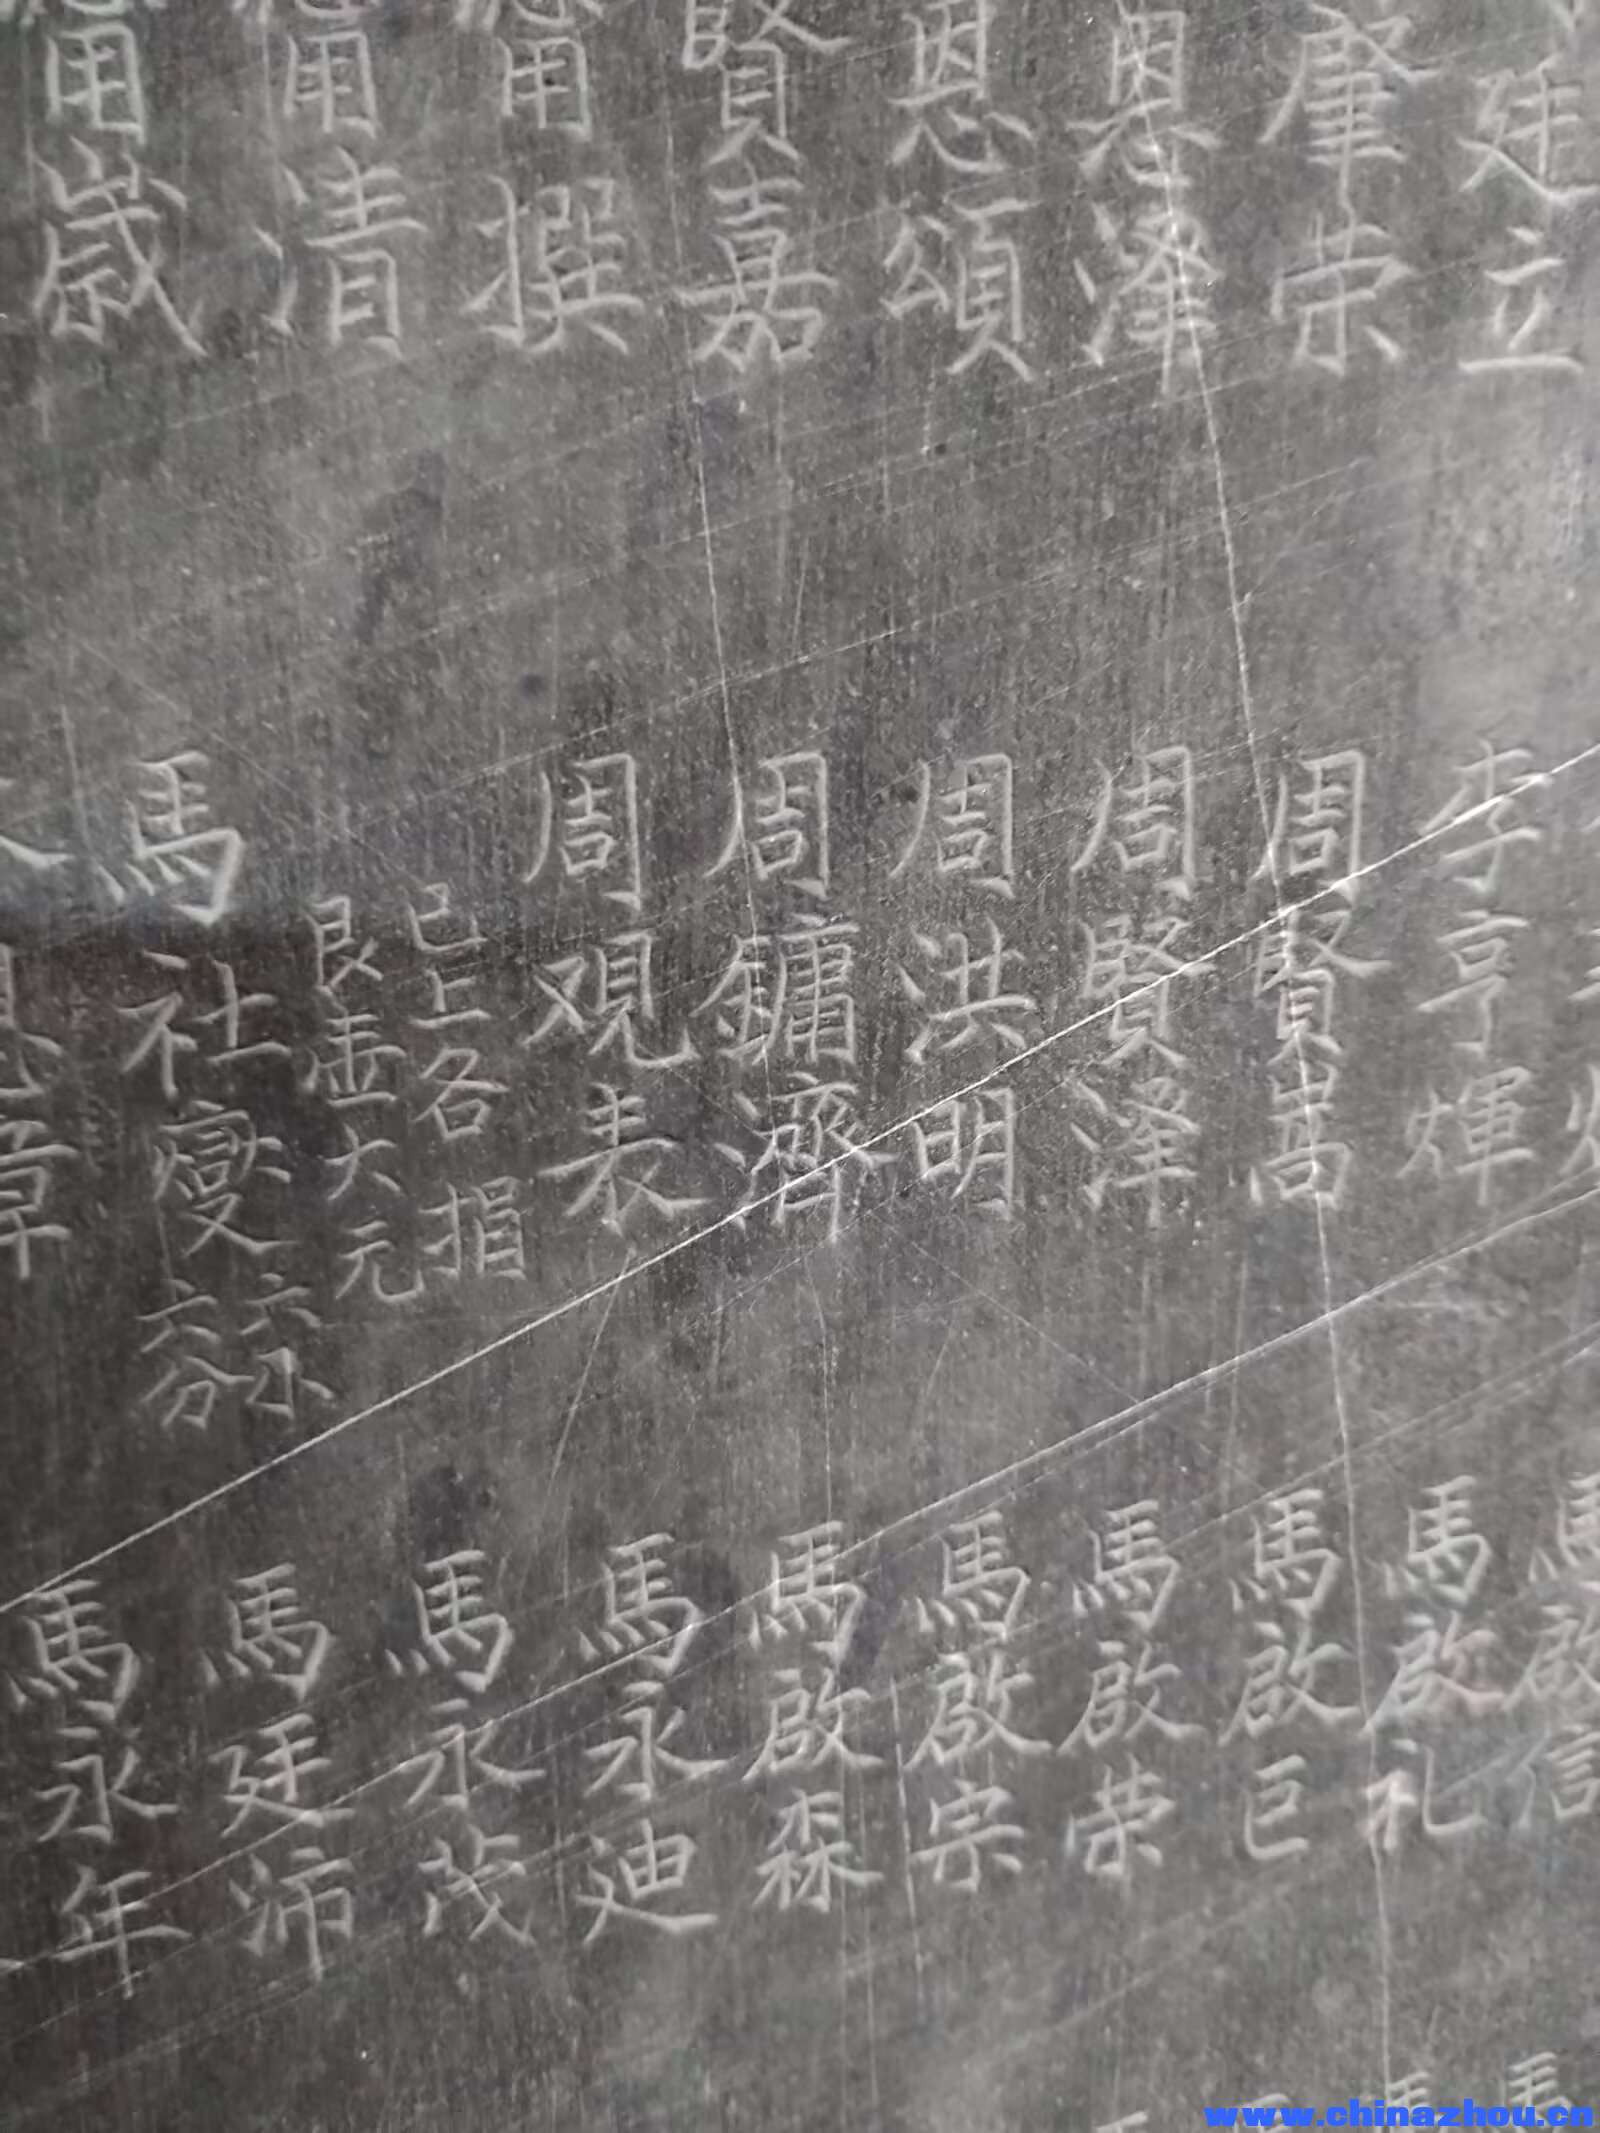 廷立
肇崇
恩澤
恩頌
賢嘉
撰
清
歲
李亨煇
周賢嵩
周賢澤
周洪明
周鏞濟
周观表
已上各捐
艮壹大元
馬社燮
六水
六分
章
馬啟信
馬啟礼
馬啟巳
馬啟荣
馬啟宗
馬啟森
馬永迪
馬永茂
馬廷沛
馬永年
www.chinazhou.cn